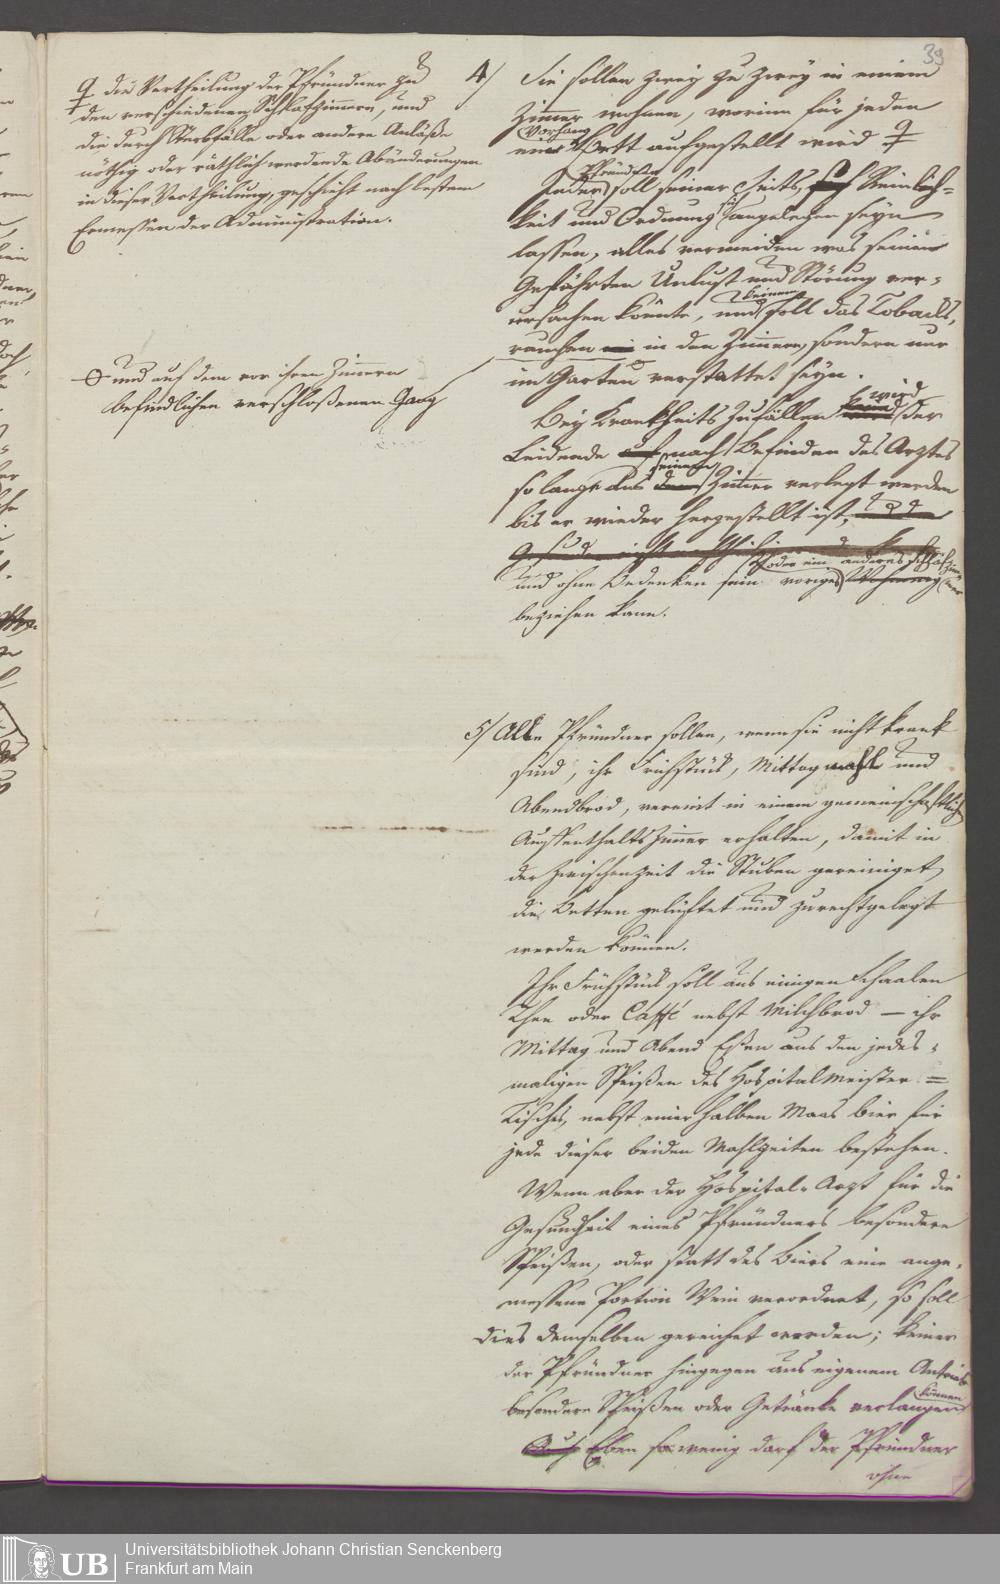 39
♀ die Vertheilung der Pfründner in
den verschiedenen Schlafzimmern, und
die durch Sterbfälle oder andere Anläße
nöthig oder räthlich werdende Abänderungen
in dieser Vertheilung, geschieht nach bestem
Ermessen der Administration.
und auf dem vor ihren Zimmern
befindlichen verschloßenen Gang
4/ Sie sollen zwey zu zwey in einem
Zimmer wohnen, worinn für jeden
Vorhang
ein Bett aufgestellt wird ♀
Pfründner
Jeder soll seiner Seits, sich Reinlich-
keit und Ordnung sich angelegen seyn
lassen, alles vermeiden was seinem
Gefährten Unlust und Störung ver-
keinem
ursachen könnte, und soll das Tobacks-
rauchen in den Zimmern, sondern nur
im Garten verstattet seyn.
wird
Bey Krankheits Zufällen kann der
Leidende auf nach Befinden des Arztes
seinem
so lange aus dem Zimmer verlegt werden
bis er wieder hergestellt ist, und
oder ein anderes Schlafzimmer
und ohne Bedenken sein voriges Wohnung
beziehen kann.
5/ Alle Pfründner sollen, wenn sie nicht krank
sind, ihr Frühstück, Mittagmahl und
Abendbrod, vereint in einem gemeinschaftlich
Aufenthalts Zimmer erhalten, damit in
der Zwischenzeit die Stuben gereiniget
die Betten gelüftet und zurechtgelegt
werden können.
Ihr Frühstück soll aus einigen Schaalen
Thee oder Caffé nebst Milchbrod – ihr
Mittag und Abend Eßen aus den jedes-
maligen Speißen des Hospitalmeister =
Tisches, nebst einer halben Maas Bier für
jede dieser beiden Mahlzeiten bestehen.
Wenn aber der Hospital-Arzt für die
Gesundheit eines Pfründners besondere
Speißen, oder statt des Biers eine ange-
messene Portion Wein verordnet, so soll
dies demselben gereichet werden; keiner
der Pfründner hingegen aus eigenem Antrieb
können
besondere Speißen oder Getränke verlangen
Auch Eben so wenig darf der Pfründner
ohne
UB
Universitätsbibliothek Johann Christian Senckenberg
Frankfurt am Main